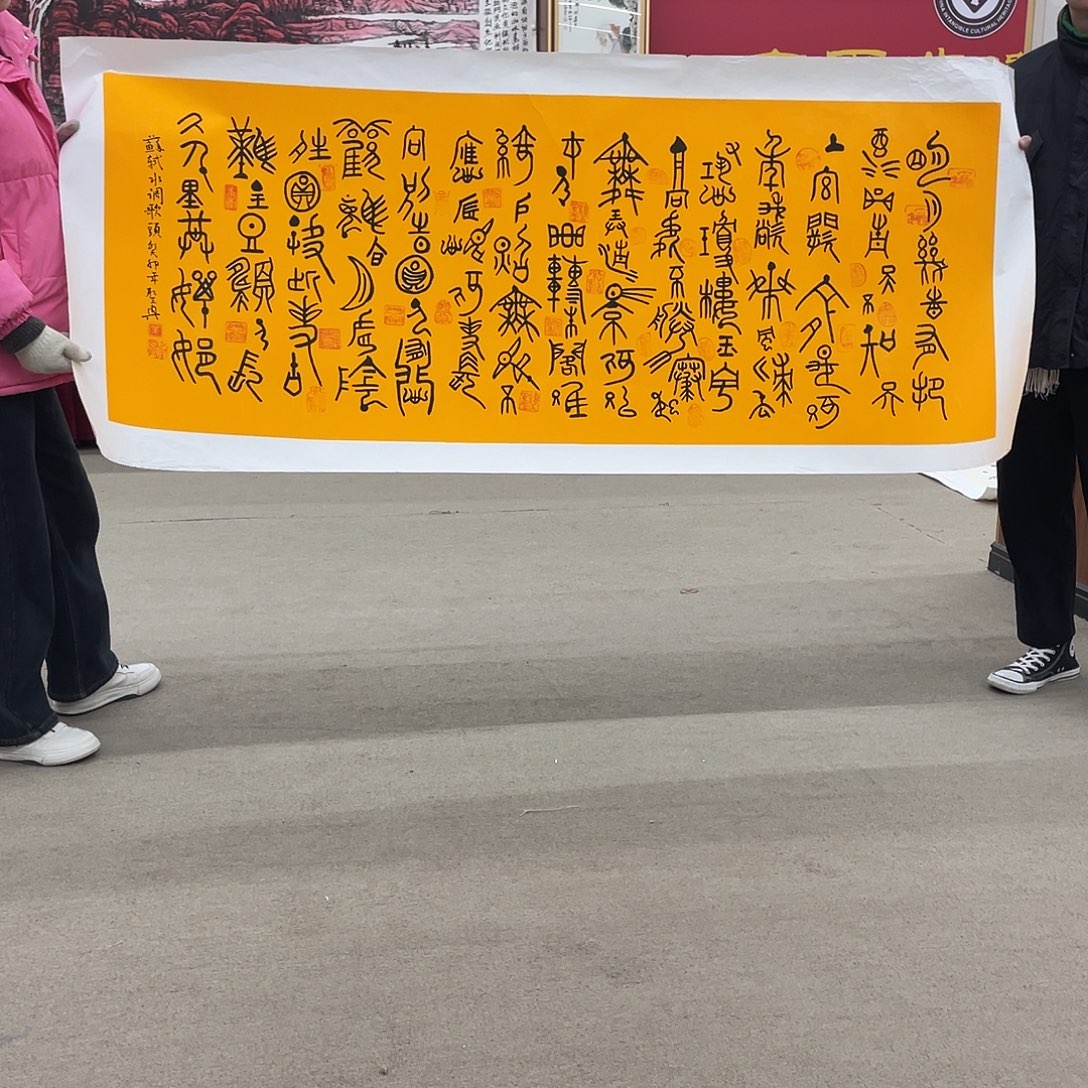 明月幾時有把
酒問青天不知天
上宫闕今夕是何
年我欲乘風歸去
又恐瓊樓玉宇
高處不勝寒起
舞弄清影何似
在人間轉朱閣低
綺户照無眠不
應有恨何事長
向别時圓人有悲
歡離合月有陰
晴圓缺此事古
難全但願人長
久千里共嬋娟
蘇軾水调歌頭癸卯年